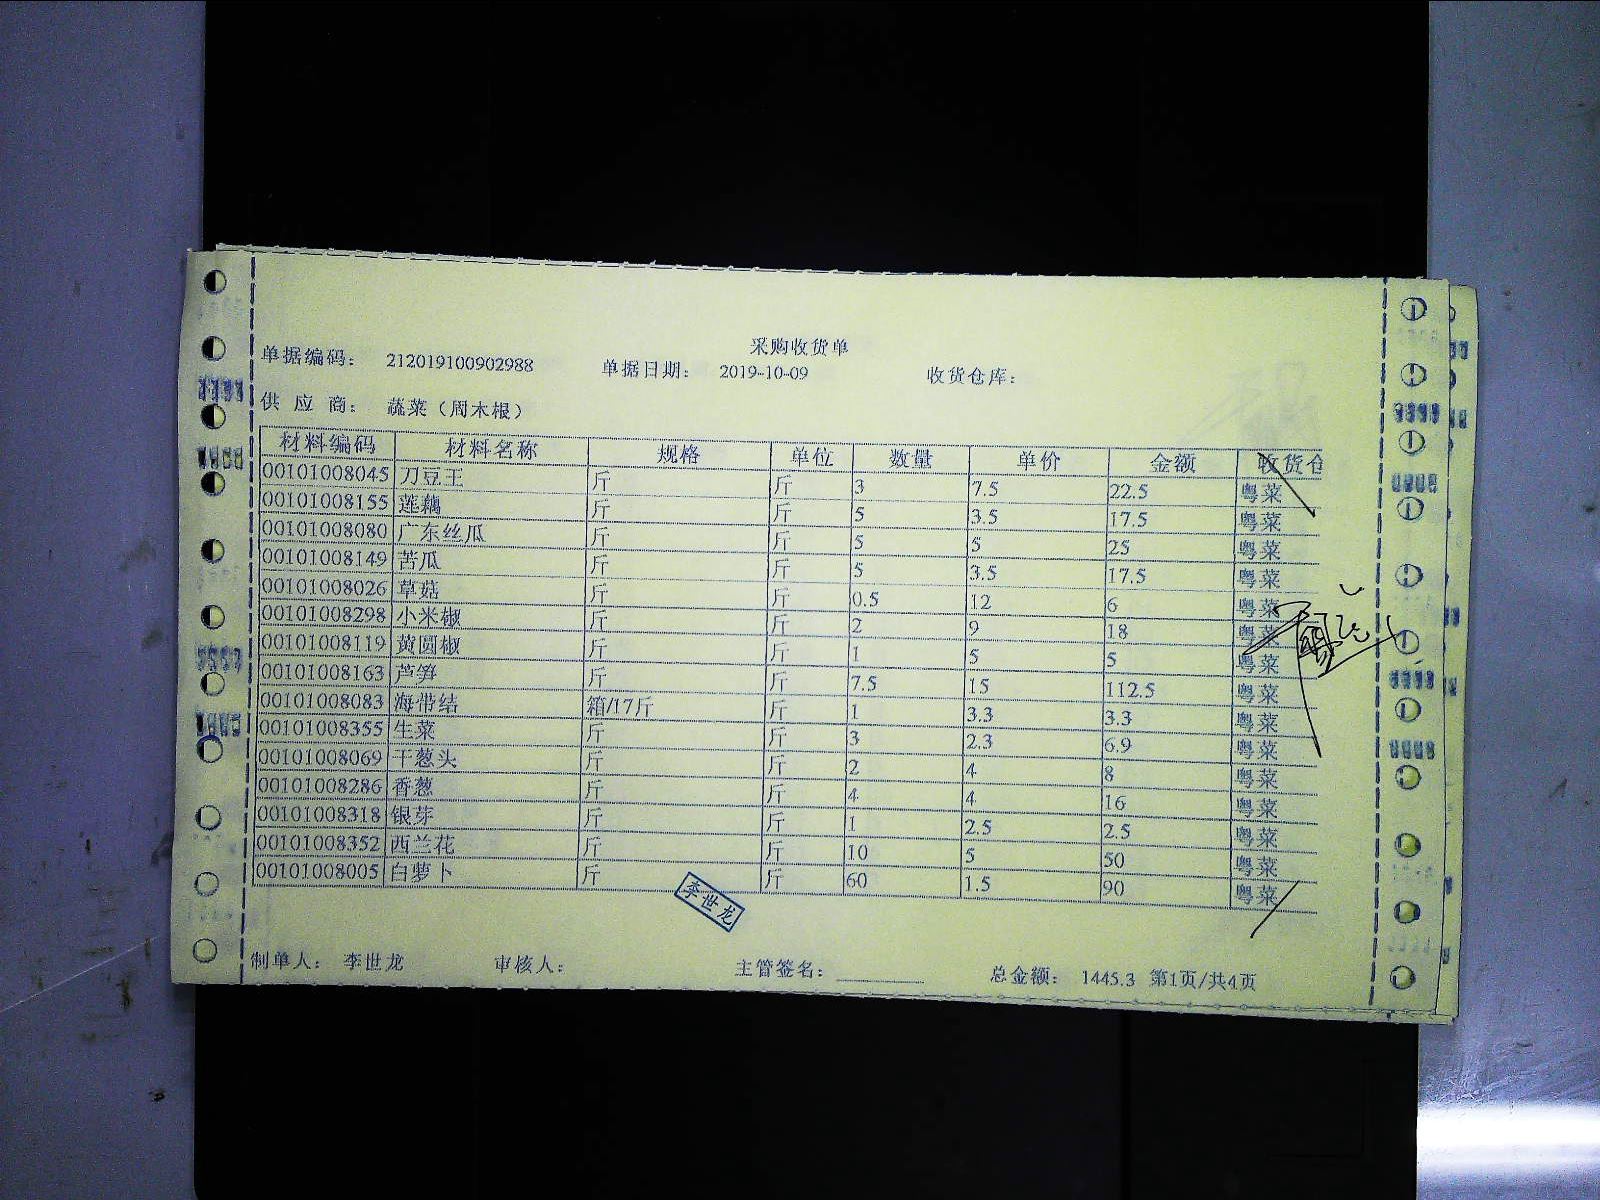 采购收货单
单据编码： 212019100902988 单据日期： 2019-10-09 收货仓库：
供 应 商： 蔬菜（周木根）
材料编码 材料名称 规格 单位 数量 单价 金额 收货仓
00101008045 刀豆王 斤 斤 3 7.5 22.5 粤菜
00101008155 莲藕 斤 斤 5 3.5 17.5 粤菜
00101008080 广东丝瓜 斤 斤 5 5 25 粤菜
00101008149 苦瓜 斤 斤 5 3.5 17.5 粤菜
00101008026 草菇 斤 斤 0.5 12 6 粤菜
00101008298 小米椒 斤 斤 2 9 18 粤菜
00101008119 黄圆椒 斤 斤 1 5 5 粤菜
00101008163 芦笋 斤 斤 7.5 15 112.5 粤菜
00101008083 海带结 箱/17斤 斤 1 3.3 3.3 粤菜
00101008355 生菜 斤 斤 3 2.3 6.9 粤菜
00101008069 干葱头 斤 斤 2 4 8 粤菜
00101008286 香葱 斤 斤 4 4 16 粤菜
00101008318 银芽 斤 斤 1 2.5 2.5 粤菜
00101008352 西兰花 斤 斤 10 5 50 粤菜
00101008005 白萝卜 斤 斤 60 1.5 90 粤菜
李世龙
制单人： 李世龙 审核人： 主管签名： 总金额： 1445.3 第1页/共4页